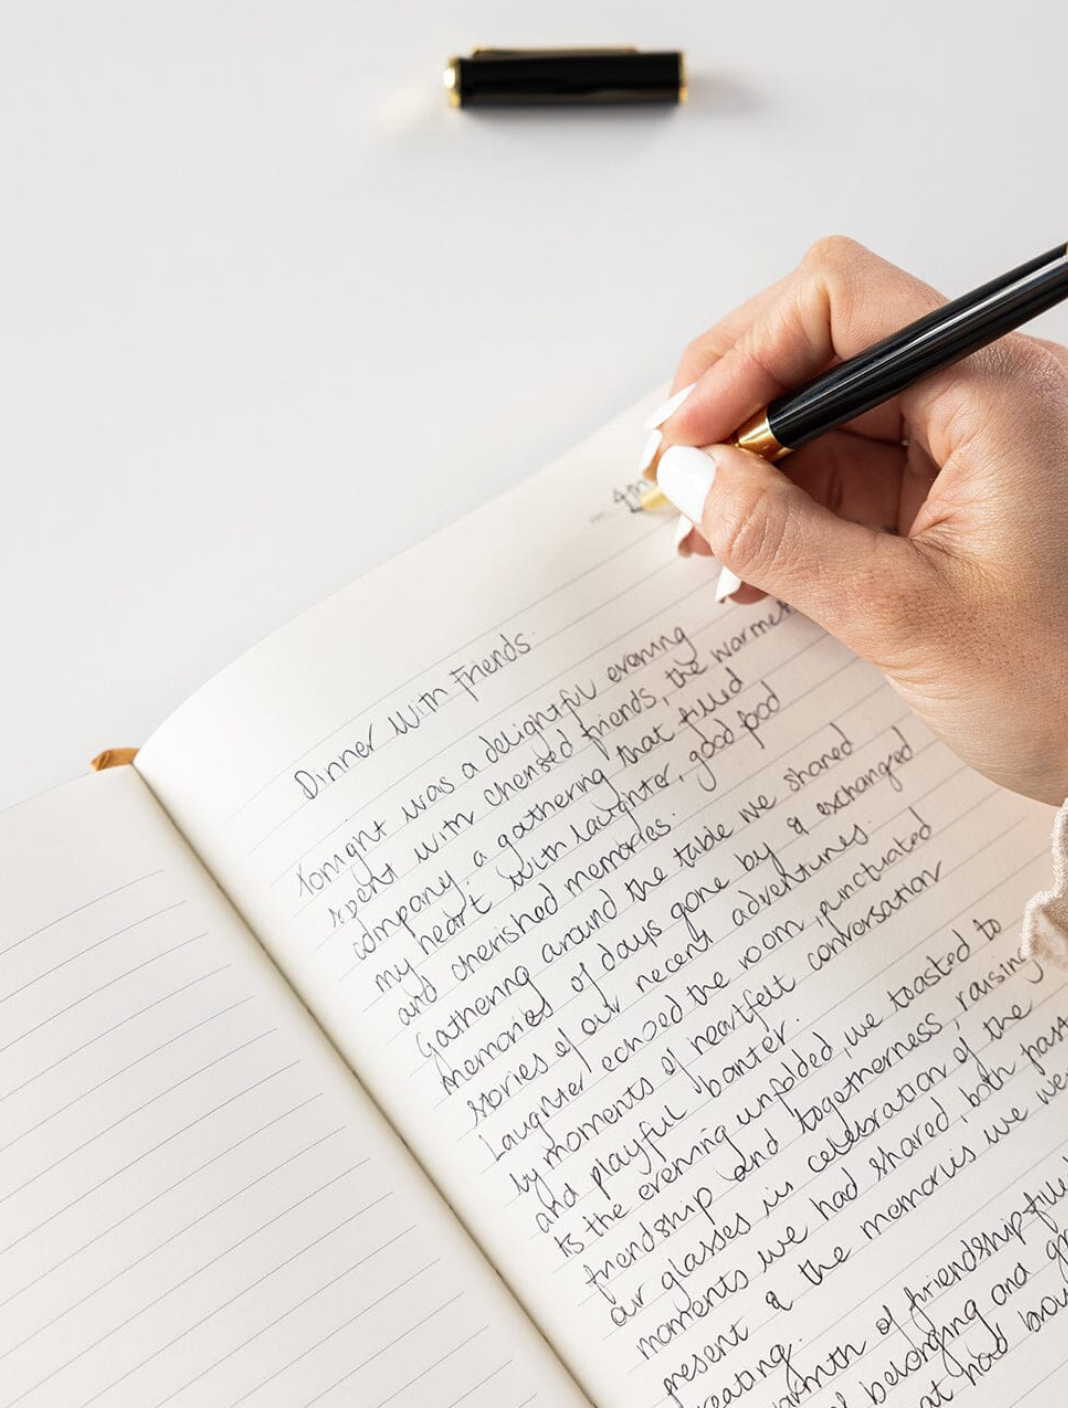 4th
Dinner With Friends.
Tonight was a delightful evening
spent with cherised friends, the warmth
company, a gathering that filled
my heart with laughter, good food
and cherished memories.
Gathering around the table we shared
memories of days gone by & exchanged
stories of our recent adventures.
Laughter echoed the room, punctuated
by moments of heartfelt conversation
and playful banter.
As the evening unfolded, we toasted to
friendship and togetherness, raising
our glasses in celebration of the
moments we had shared, both past
present & the memories we
creating.
of friendship
belonging and
had